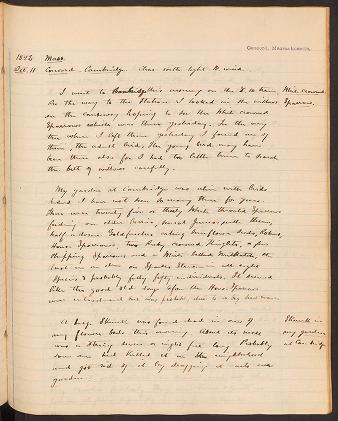 Concord, Massachusetts.
1892 Mass.
Oct. 11 Concord. Cambridge. Clear with light N. wind.
I went to Cambridge this morning on the 8 train. White-crowned
On the way to the Station I looked in the willows Sparrows.
on the causeway hoping to see the White crowned
Sparrows which were there yesterday. In the very
tree where I left them yesterday I found one of
them, the adult bird. The young bird may have
been there also for I had too little time to search
the belt of willows carefully.
My garden at Cambridge was alive with birds
indeed I have not seen so many there for years.
There were twenty five or thirty White throated Sparrows
feeding on elder berries, several Juncos with them,
half a dozen Goldfinches eating Sunflower seeds, Robins,
House Sparrows, two Ruby crowned Kinglets, a few
Chipping Sparrows and a White bellied Nuthatch, the
last in an elm on Sparks Street in all eight
species & probably fifty individuals. It seemed
like the good old days before the House Sparrow
was introduced but was probably due to a big bird wave.
A large Skunk was found dead in one of Skunk in
my flower beds this morning. About its neck my garden
was a string seven or eight feet long. Probably at Cambridge
some one had killed it in the neighborhood
and got rid of it by dragging it into our
garden.